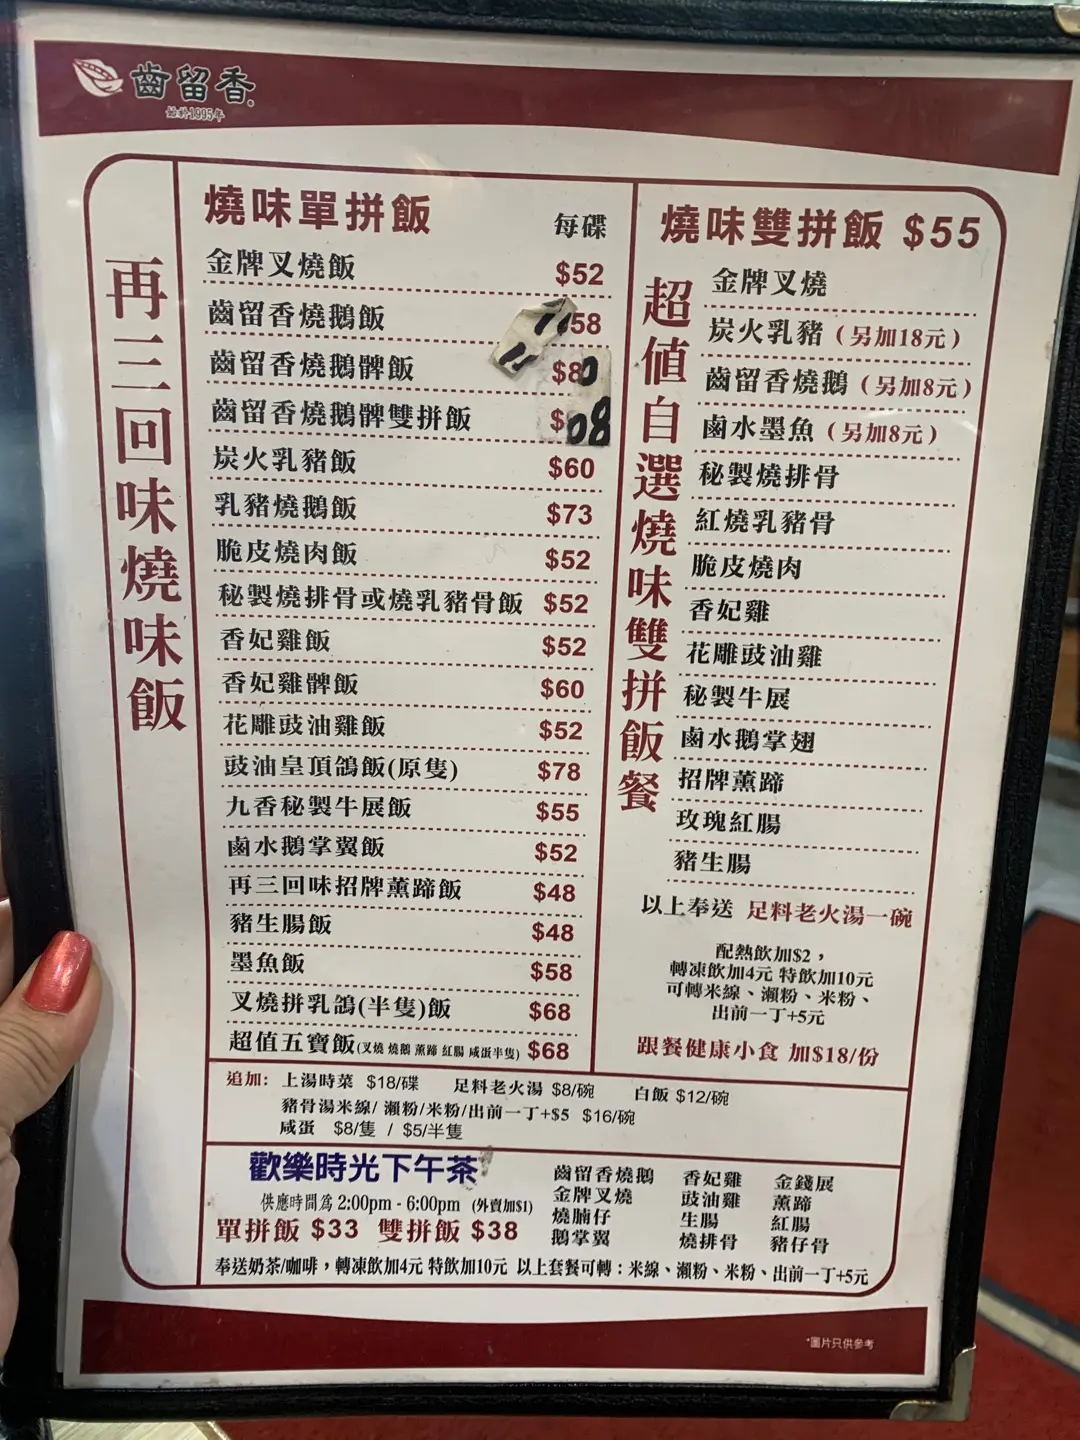 齒留香
始於1995年
再三回味燒味飯
燒味單拼飯 每碟
金牌叉燒飯 $52
齒留香燒鵝飯 58
齒留香燒鵝髀飯 $80
齒留香燒鵝髀雙拼飯 $
炭火乳豬飯 $60
乳豬燒鵝飯 $73
脆皮燒肉飯 $52
秘製燒排骨或燒乳豬骨飯 $52
香妃雞飯 $52
香妃雞髀飯 $60
花雕豉油雞飯 $52
豉油皇頂鴿飯(原隻) $78
九香秘製牛展飯 $55
鹵水鵝掌翼飯 $52
再三回味招牌薰蹄飯 $48
豬生腸飯 $48
墨魚飯 $58
叉燒拼乳鴿(半隻)飯 $68
超值五寶飯(叉燒 燒鵝 薰蹄 紅腸 咸蛋半隻) $68
燒味雙拼飯 $55
超值自選燒味雙拼飯餐
金牌叉燒
炭火乳豬（另加18元）
齒留香燒鵝（另加8元）
鹵水墨魚（另加8元）
秘製燒排骨
紅燒乳豬骨
脆皮燒肉
香妃雞
花雕豉油雞
秘製牛展
鹵水鵝掌翅
招牌薰蹄
玫瑰紅腸
豬生腸
以上奉送 足料老火湯一碗
配熱飲加$2，
轉凍飲加4元 特飲加10元
可轉米線、瀨粉、米粉、
出前一丁+5元
跟餐健康小食 加$18/份
追加: 上湯時菜 $18/碟 足料老火湯 $8/碗 白飯 $12/碗
豬骨湯米線/ 瀨粉/米粉/出前一丁+$5 $16/碗
咸蛋 $8/隻 / $5/半隻
歡樂時光下午茶
供應時間為 2:00pm - 6:00pm (外賣加$1)
單拼飯 $33 雙拼飯 $38
齒留香燒鵝 香妃雞 金錢展
金牌叉燒 豉油雞 薰蹄
燒腩仔 生腸 紅腸
鵝掌翼 燒排骨 豬仔骨
奉送奶茶/咖啡，轉凍飲加4元 特飲加10元 以上套餐可轉：米線、瀨粉、米粉、出前一丁+5元
*圖片只供參考